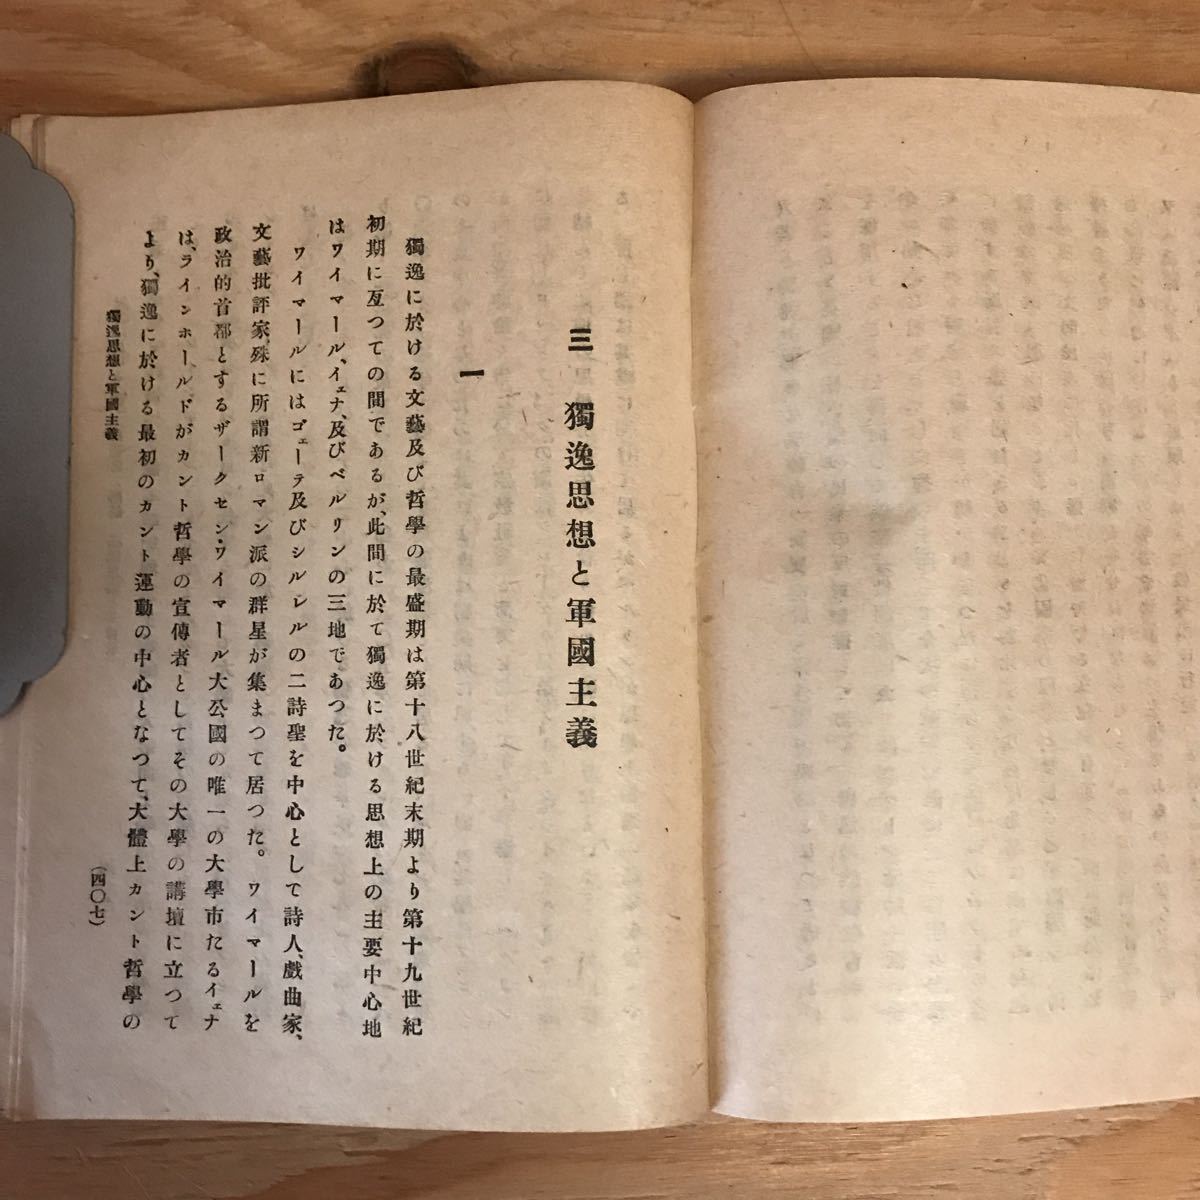 三　獨逸思想と軍國主義
一
獨逸に於ける文藝及び哲學の最盛期は第十八世紀末期より第十九世紀
初期に亙つての間であるが、此間に於て獨逸に於ける思想上の主要中心地
はワイマール、イェナ、及びベルリンの三地であつた。
ワイマールにはゴェーテ及びシルレルの二詩聖を中心として詩人、戲曲家、
文藝批評家、殊に所謂新ロマン派の群星が集まつて居つた。ワイマールを
政治的首都とするザークセン・ワイマール大公國の唯一の大學市たるイェナ
は、ラインホールドがカント哲學の宣傳者としてその大學の講壇に立つて
より、獨逸に於ける最初のカント運動の中心となつて、大體上カント哲學の
獨逸思想と軍國主義
（四〇七）